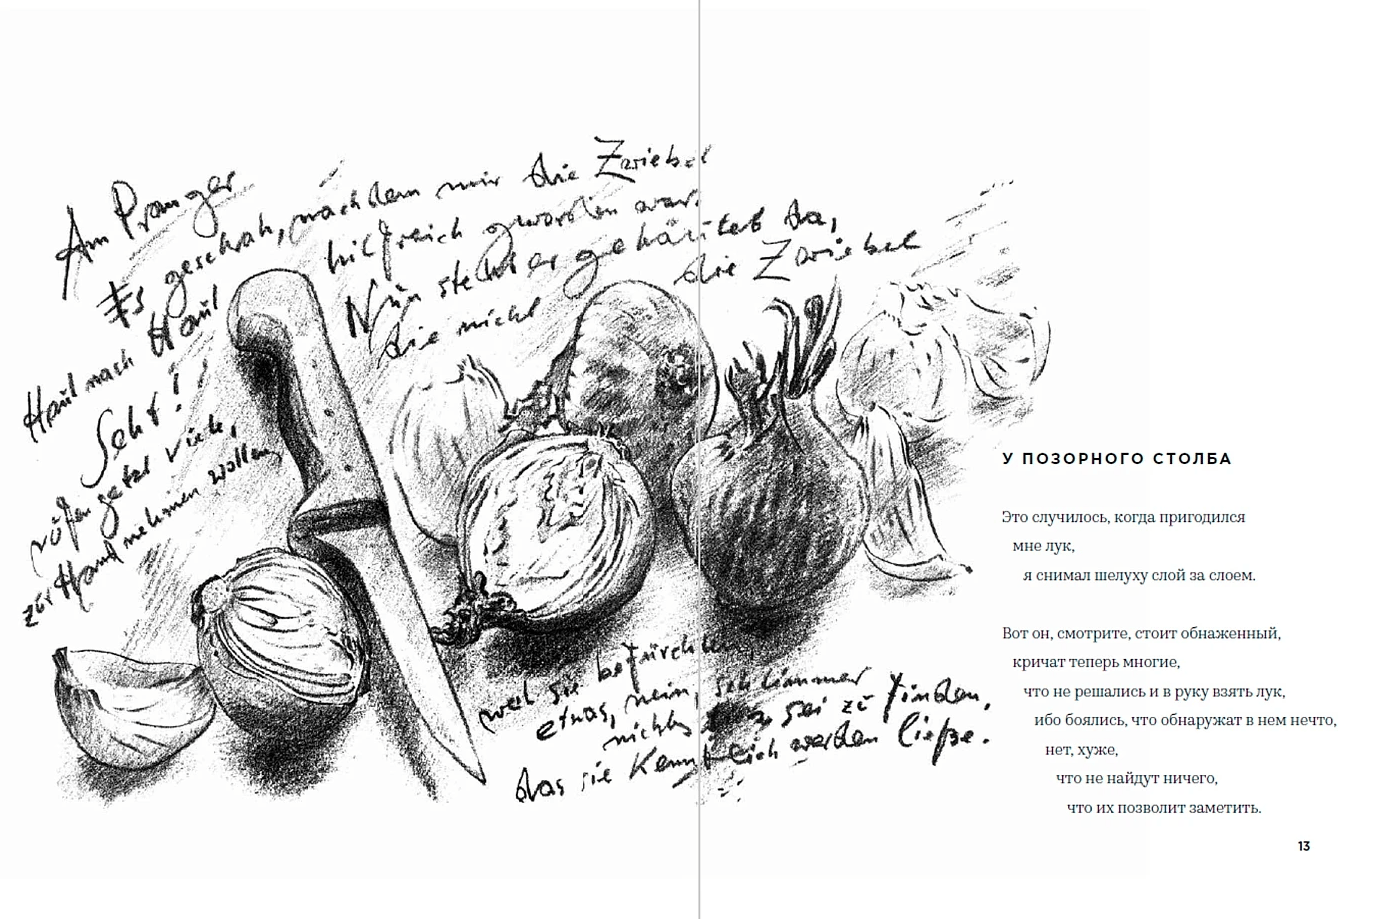 Am Pranger
Es geschah, nachdem mir die Zwiebel
hilfreich geworden war:
Haut nach Haut
Nun steht er gehäutet da,
Seht!
rufen jetzt viele,
die nicht die Zwiebel
zur Hand nehmen wollen,
weil sie befürchten
etwas, nein, schlimmer
nichts sei zu finden,
das sie kenntlich werden ließe.
У ПОЗОРНОГО СТОЛБА
Это случилось, когда пригодился
мне лук,
я снимал шелуху слой за слоем.
Вот он, смотрите, стоит обнаженный,
кричат теперь многие,
что не решались и в руку взять лук,
ибо боялись, что обнаружат в нем нечто,
нет, хуже,
что не найдут ничего,
что их позволит заметить.
13